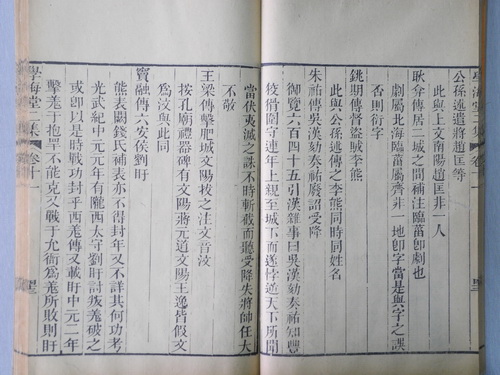 學海堂二集
公孫述遣將趙匡等
此與上文南陽趙匡非一人
耿弇傳居二城之間補注臨菑卽劇也
劇屬北海臨菑屬齊非一地卽字當是與字之誤
否則衍字
銚期傳督盜賊李熊
此與公孫述傳之李熊同時同姓名
朱祐傳吳漢劾奏祐廢詔受降
御覽六百四十五引漢雜事曰吳漢劾奏祐知豐
狡猾圍守連年上親至城下而遂悖逆天下所聞
當伏夷滅之誅不時斬截而聽受降失將帥任大
不敬
王梁傳擊肥城文陽拔之注文音汶
按孔廟禮器碑有文陽蔣元道文陽王逸皆假文
爲汶與此同
竇融傳六安侯劉盱
熊表闕錢氏補表亦不得封年又不詳其何功考
光武紀中元元年有隴西太守劉盱討叛羌破之
或卽以是時戰功封乎西羌傳又載盱中元二年
擊羌于抱罕不能克又戰于允街爲羌所敗則盱
學海堂二集 卷十一